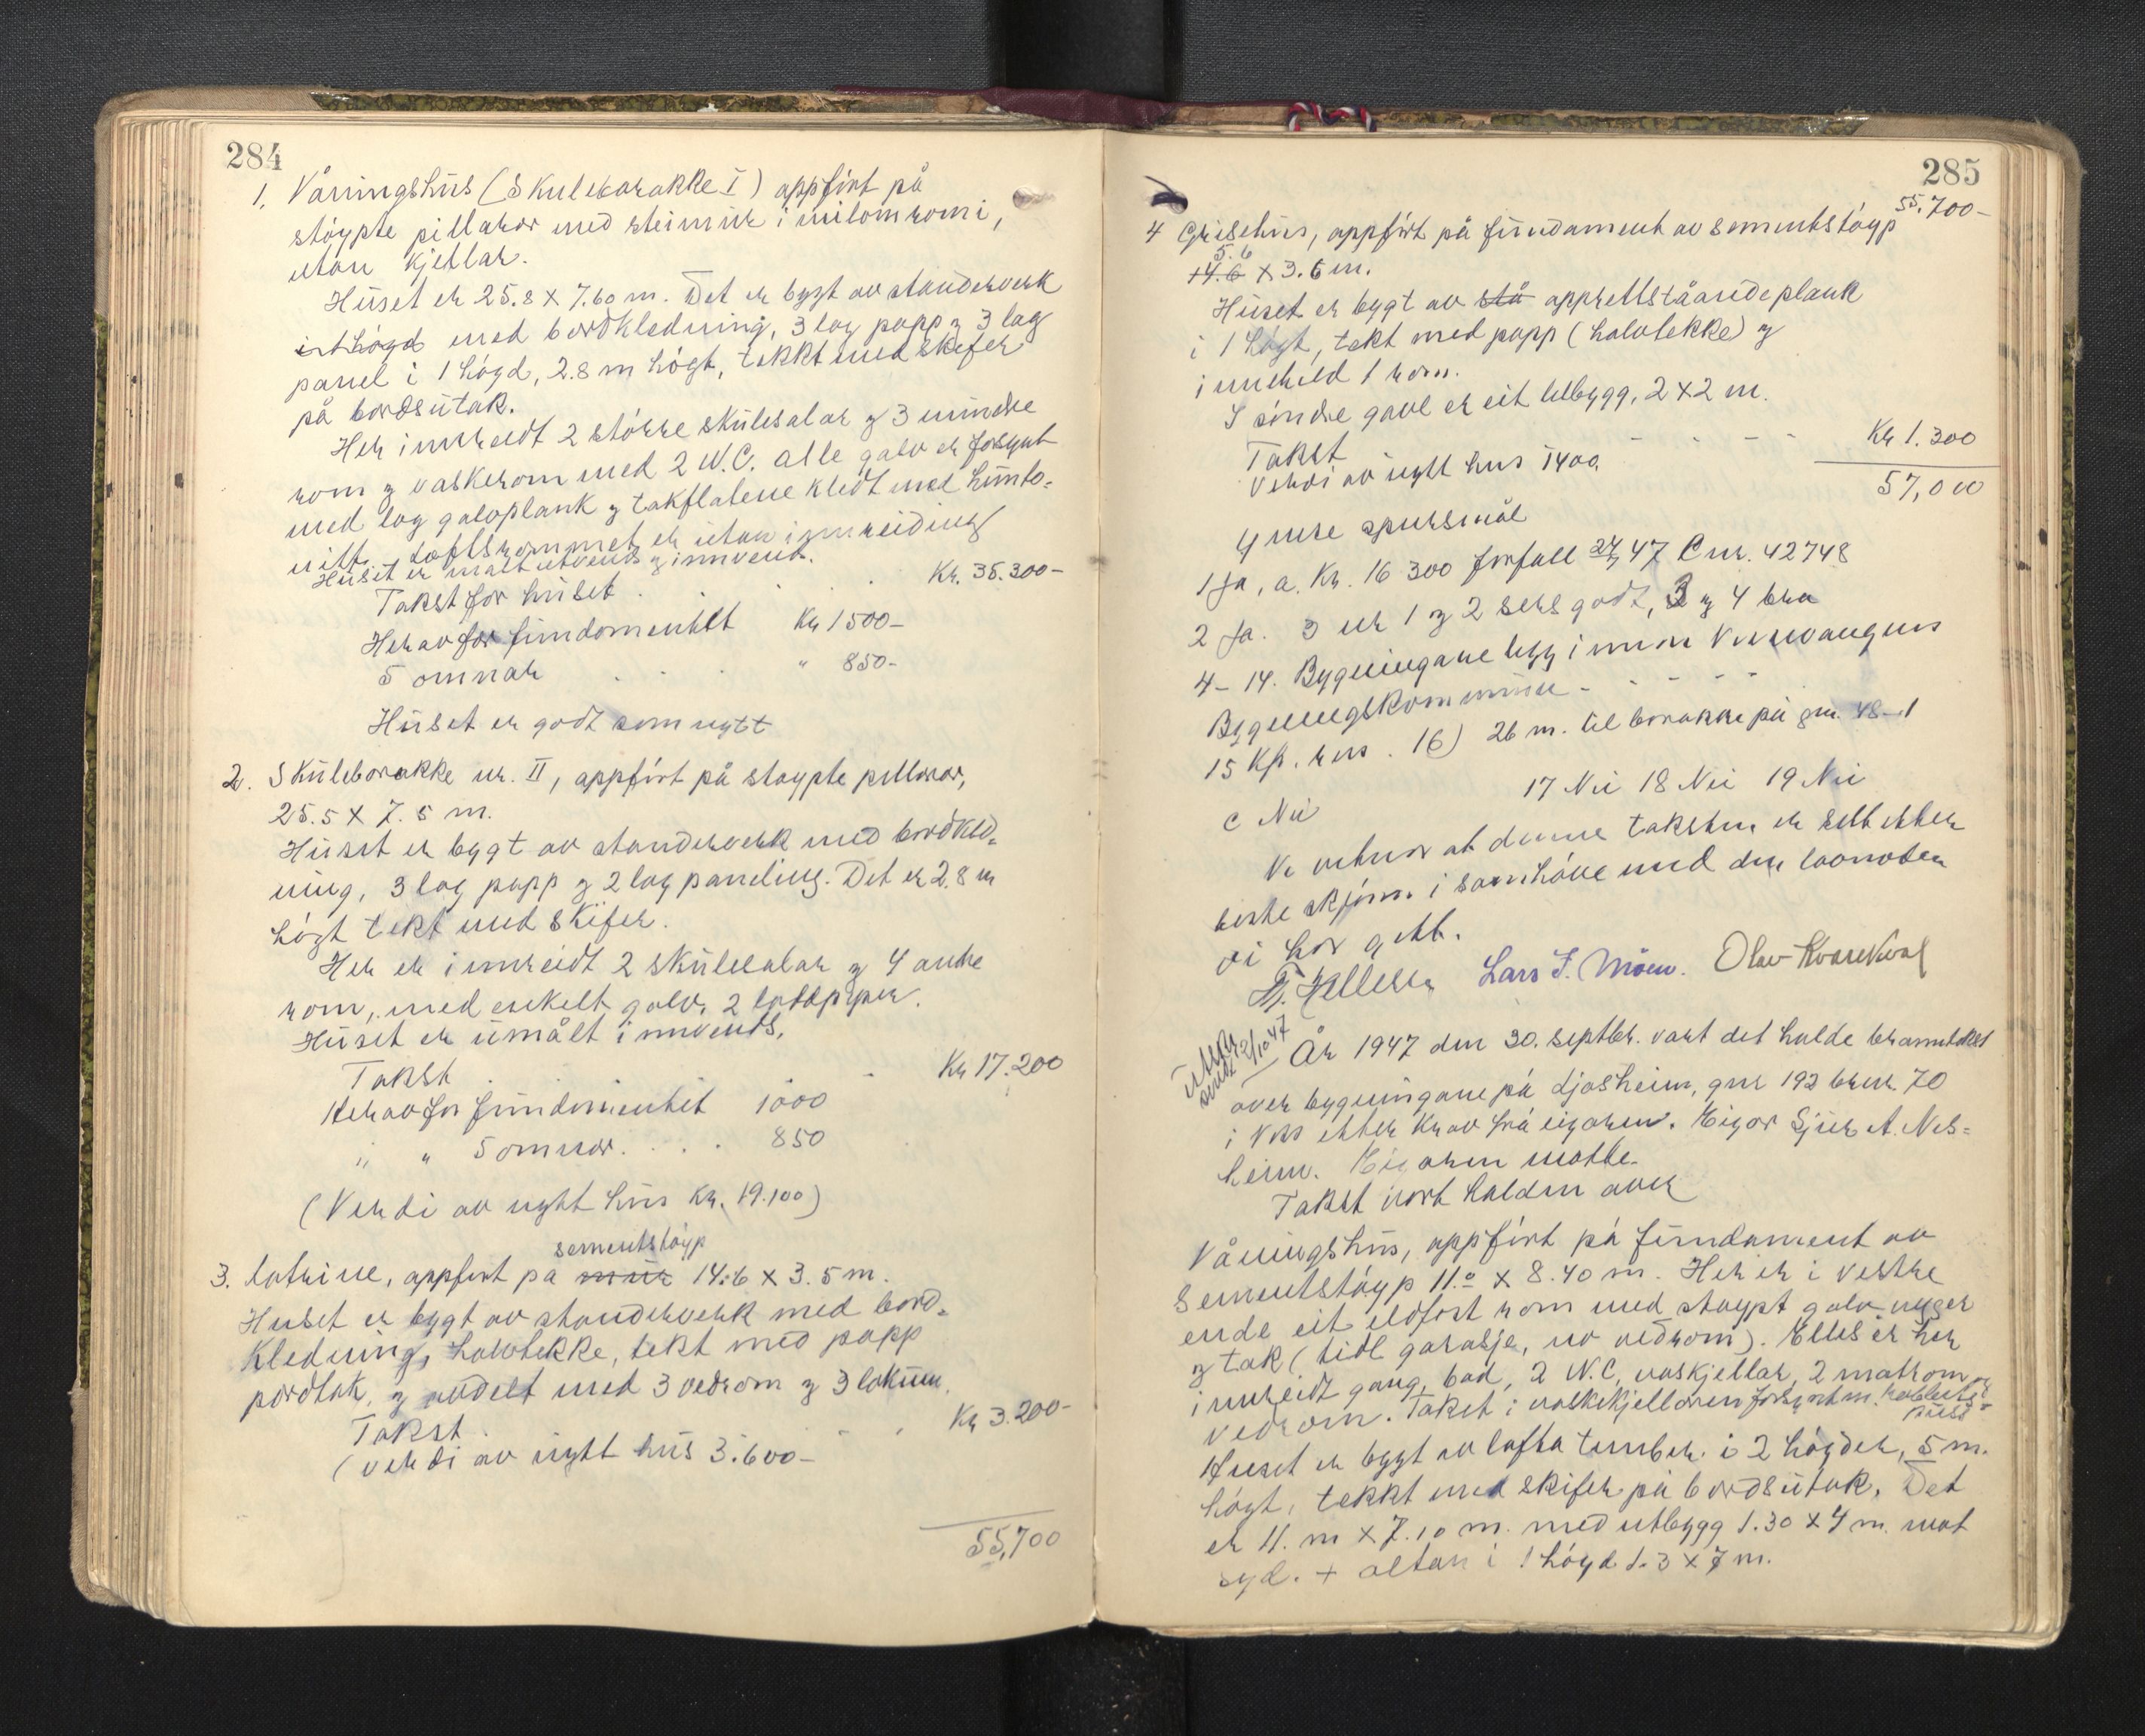 284
1. Våningshus (Skulebarakke I) oppført på
støypte pillarar med steinmur i millomromi,
utan kjellar.
Huset er 25.8 x 7.60 m. Det er bygt av standerverk
med bordkledning, 3 lag papp og 3 lag
panel i 1 høgd, 2.8 m høgt, tekkt med skifer
på bordsutak.
Her innreidt 2 større skulesalar og 3 mindre
rom og vaskerom med 2 W.C. alle golv er forsynt
med lag golvplank og takflatene kledt med hunto-
nitt. Loftsrommet er utan innreiding
Huset er malt utvends og innvends.
Takst for huset . . . Kr. 35.300-
Herav for fundamentet Kr 1500-
5 omnar . . . " 850-
Huset er godt som nytt
2. Skulebarakke nr. II, oppført på støypte pillarar,
25.5 x 7.5 m.
Huset er bygt av standerverk med bordkled-
ning, 3 lag papp og 2 lag paneling. Det er 2.8 m
høgt tekt med skifer.
Her er innreidt 2 skulesalar og 4 andre
rom, med enkelt golv, 2 loftpiper.
Huset er umålt innvends.
Takst . . Kr 17.200
Herav for fundamentet 1000
" " 5 omnar. . . . 850
(Verdi av nytt hus Kr. 19.100)
sementstøyp
3. Latrine, oppført på mur 14.6 x 3.5 m.
Huset er bygt av standerverk med bord-
kledning, halvtekke, tekt med papp
bordtak, og avdelt med 3 vedrom og 3 lokum.
Takst . . Kr 3.200-
(verdi av nytt hus 3.600-
55,700
285
55.700-
4 Grisehus, oppført på fundament av sementstøyp
5.6
14.6 x 3.6 m.
Huset er bygt av stå opprettståande plank
i 1 høgt, tekt med papp (halvtekke) og
inneheld 1 rom.
I søndre gavl er eit tilbygg, 2 x 2 m.
Takst - - - - Kr 1.300
Verdi av nytt hus 1400.
57,000
Ymse spursmål
1 Ja, a. Kr. 16 300 forfall 47 C nr. 42748
2 Ja. 3 nr 1 og 2 sers godt, 3 og 4 bra
4-14. Bygningane ligg innan Vossevangens
Bygningskommune - - - - -
15 Kfr. . 16) 26 m. til barakke på gnr. 48-1
17 Nei 18 Nei 19 Nei
c Nei
Vi vitnar at denne taksten er sett etter
beste skjøn i samhøve med den lovnaden
vi har gjeve.
Lars J. Møen. Olav Kvarekval
Utskr.
sendt 12/10 47
År 1947 den 30. septbr. vart det halde branntakst
over bygningane på Ljosheim, gnr 192 bnr 70
i Voss etter krav frå eigaren. Eigar Sjur A. Nes-
heim. Eigaren møtte.
Takst vart halden over
Våningshus, oppført på fundament av
Sementstøyp 11.0 x 8.40 m. Her er i vestre
ende eit eldfast rom med støypt golv veger
og tak (tidl garasje, no vedrom). Elles er her
innreidt gang, bad, 2 W.C, vaskjellar, 2 matrom og
vedrom. Taket i vaskekjellaren forsynt m.
puss
Huset er bygt av lafta tømber i 2 høgder, 5 m.
høgt, tekkt med skifer på bordsutak. Det
er 11. m x 7.10 m. med utbygg 1.30 x 4 m. mot
syd. + altan i 1 høgd 1.3 x 7 m.